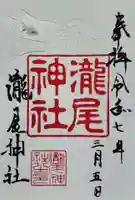 奉拝 令和七年
三月五日
瀧尾
神社
瀧尾神社